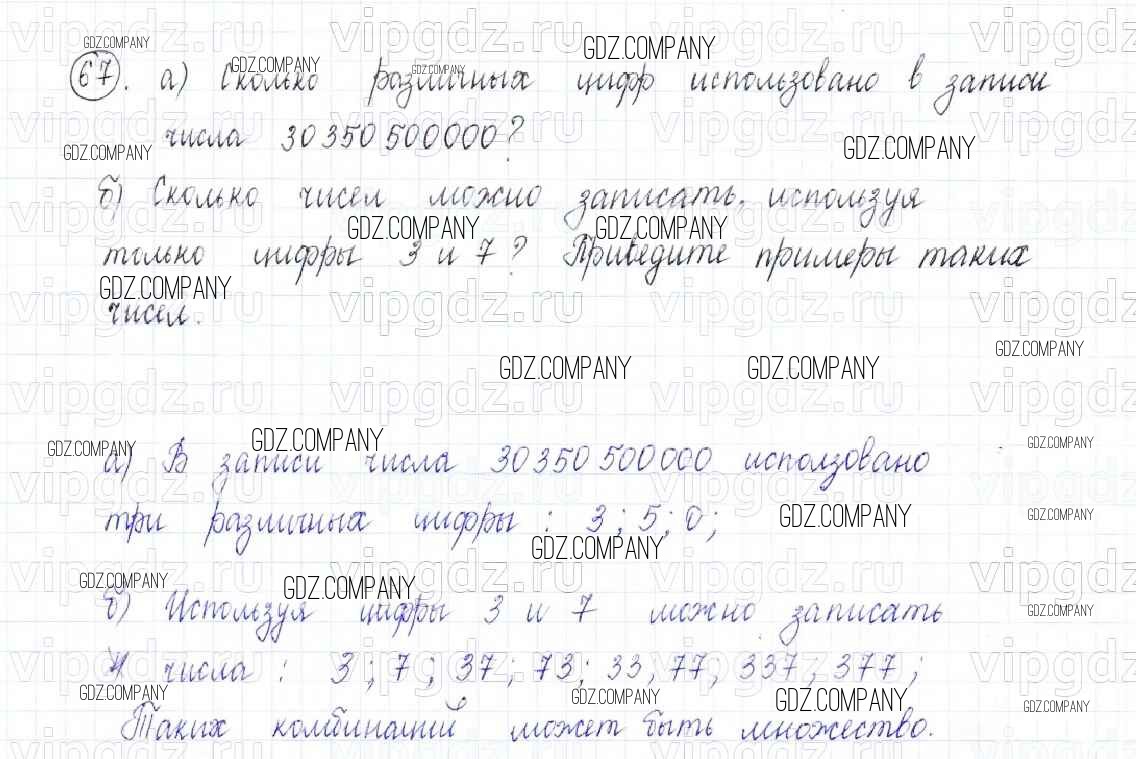 67. а) Сколько различных цифр использовано в записи
числа 30 350 500 000?
б) Сколько чисел можно записать, используя
только цифры 3 и 7? Приведите примеры таких
чисел.
а) В записи числа 30 350 500 000 исползовано
три различных цифры : 3 ; 5 ; 0 ;
б) Используя цифры 3 и 7 можно записать
числа : 3 ; 7 ; 37 ; 73 ; 33, 77; 337, 377 ;
Таких комбинаций может быть множество.
GDZ.COMPANY
vipgdz.ru